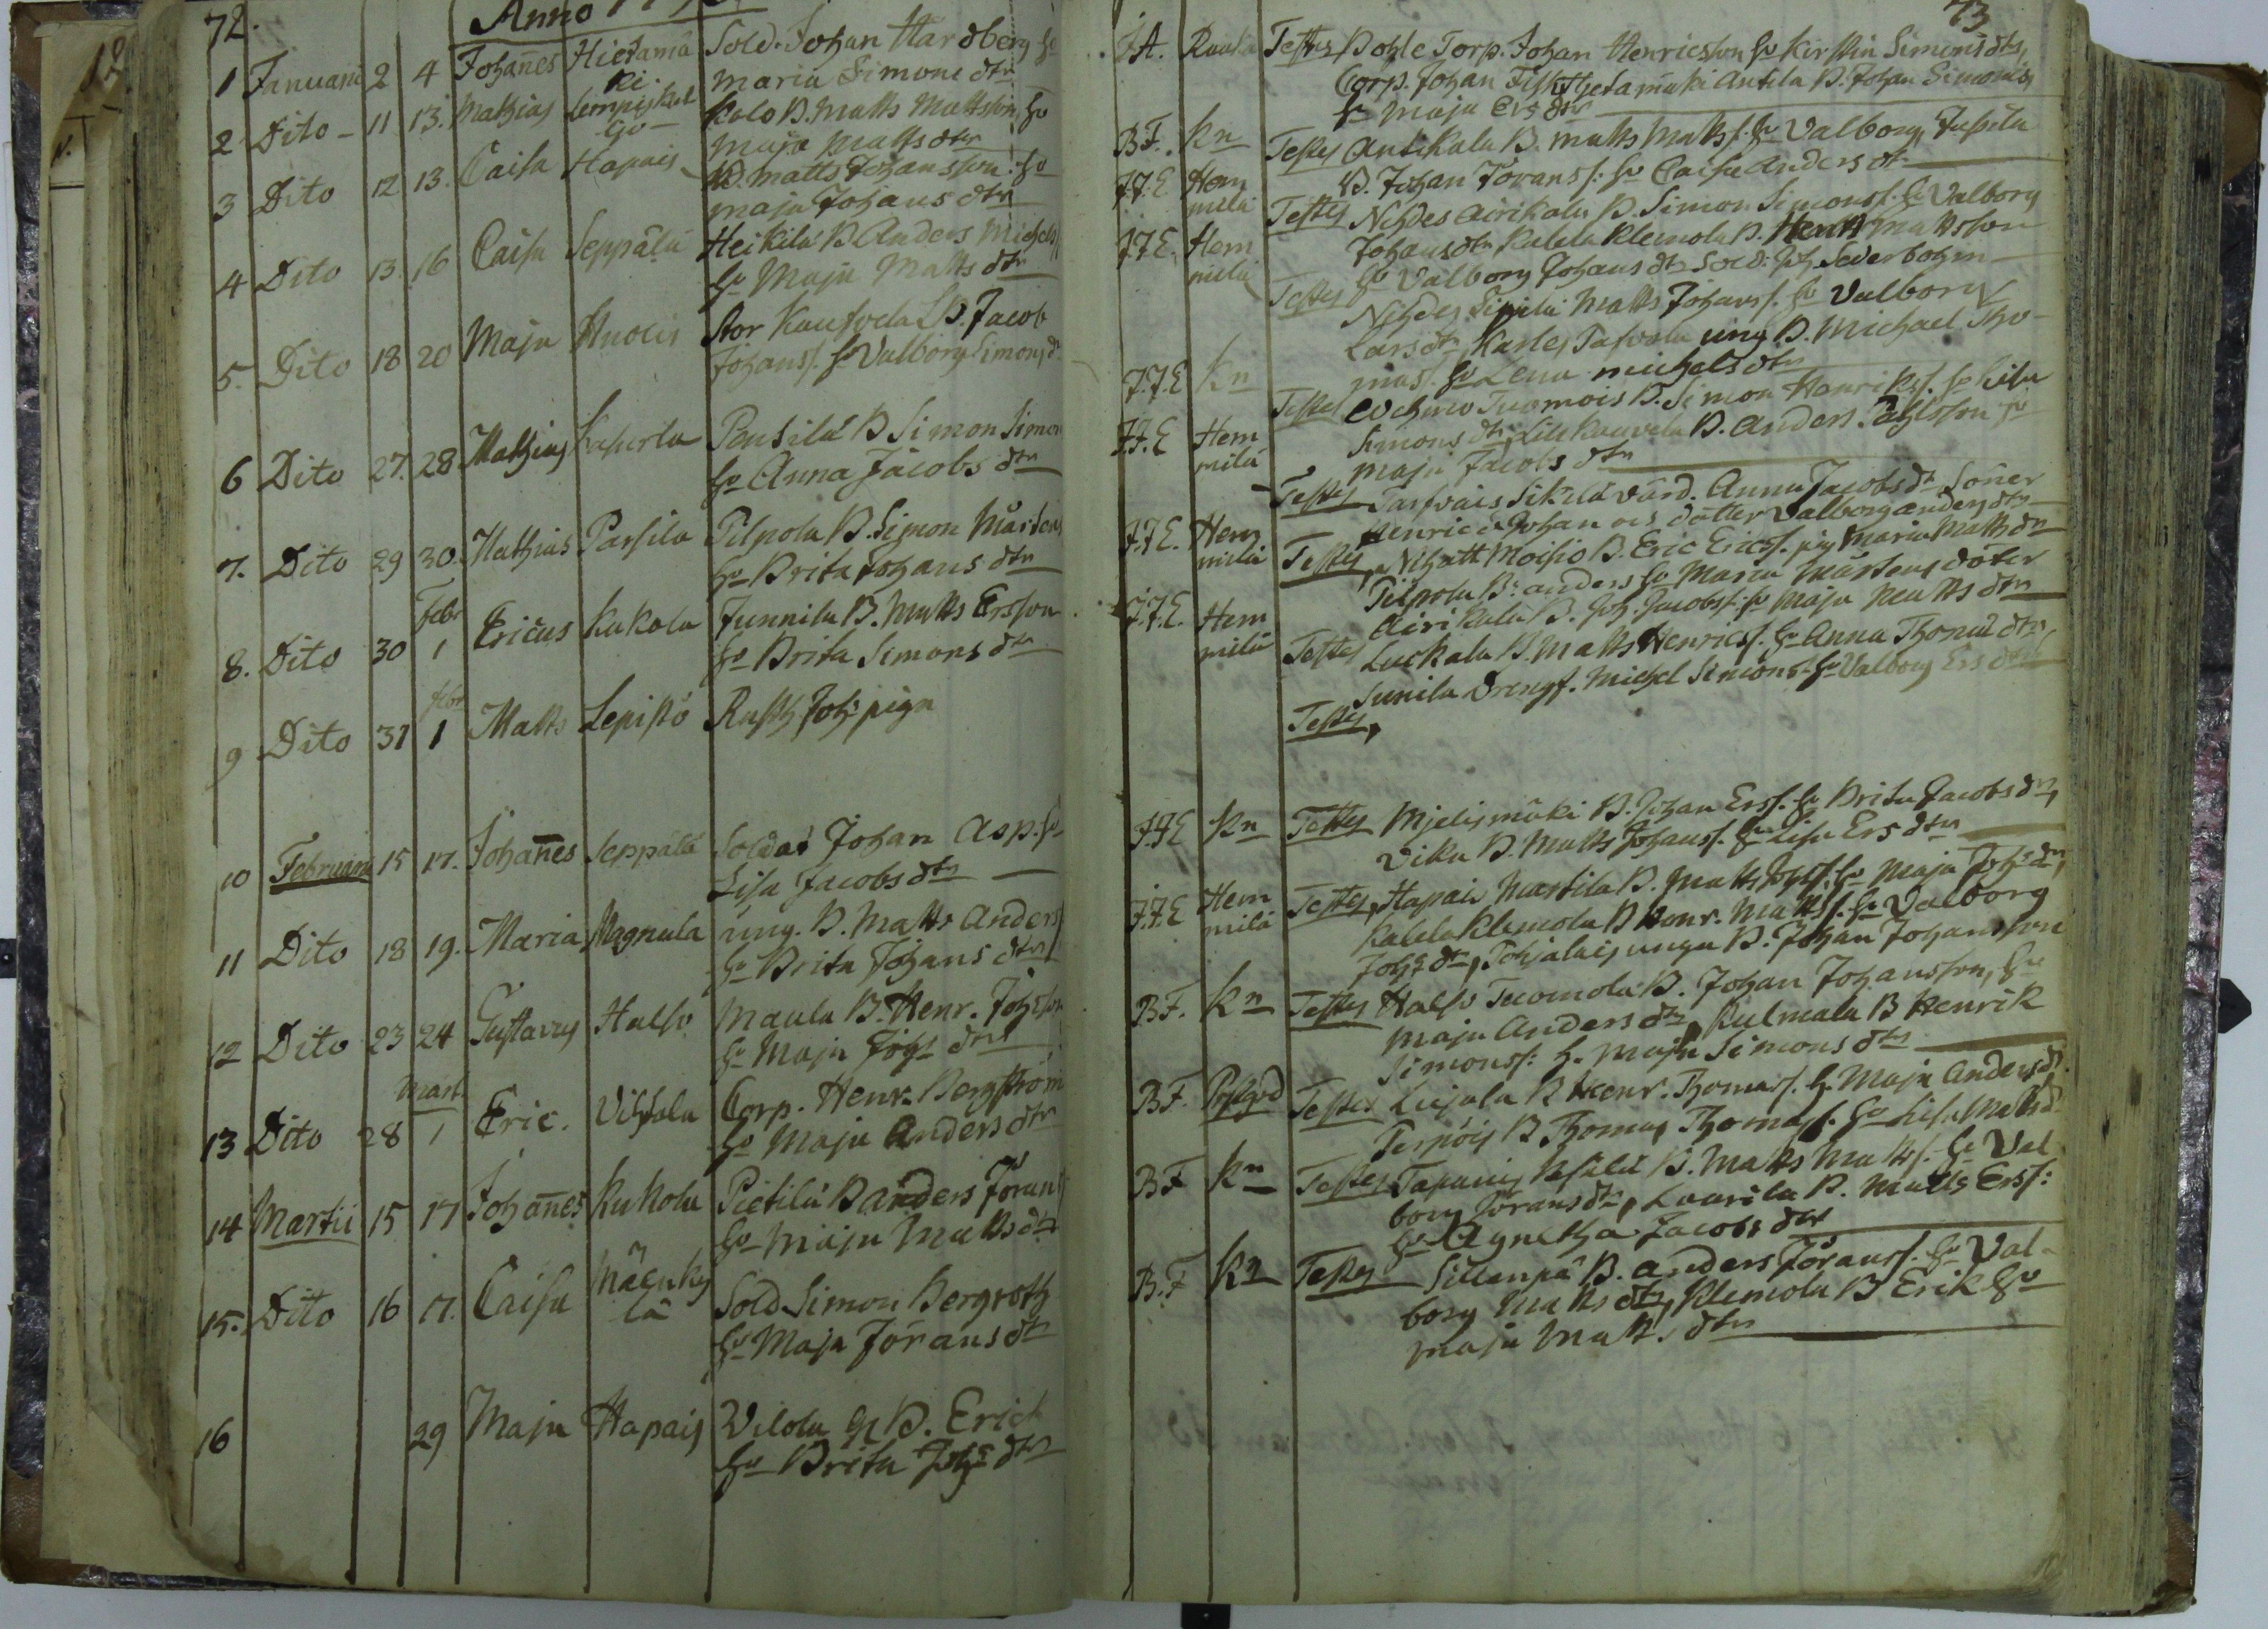 72.
Anno
1 Januarii 2 4 Johañes Hietamä Sold. Johan Hardberg hu
ki. Maria Simons dtr
2 Dito - 11 13. Mathias Lempis Kalo B. Matts Mattsson, hu
Maja Matts dtr
3 Dito 12 13. Caisa Hapais B. Matts Johansson. hu
Maja Johans dtr
4 Dito 13 16 Caisa Seppälä Heikilä B Anders Michels
hu Maja Matts dtr
5. Dito 18 20 Maja Anois Stor Kaufvela B. Jacob
Johanss. hu Valborg Simons dr
6 Dito 27. 28 Mathias Pensilä B Simon Simon
hu Anna Jacobs dtr
7. Dito 29 30. Mathias Parsila Pilpola B. Simon Mårtens
hu Brita Johans dtr
Febr
8. Dito 30 1 Ericus Kukola Junnila B. Matts Ersson
hu Brita Simons dtr
febr
9 Dito 31 1 Matts Lepistö Rusth. Joh: pign
10 Februarii 15 17. Johañes Seppälä Soldat Johan Asp. hu
Lisa Jacobs dtr
11 Dito 18 19. Maria Magnula ung. B. Matts Anders
hu Brita Johans dtr
12 Dito 23 24 Gustavus Halso Maula B. Henr. Johsson
hu Maja Johs dtr
Mart.
13 Dito 28 1 Eric. Vihtola Corp. Henr. Bergström
hu Maja Anders dtr
14 Martii 15 17 Johañes Kukola Pietilä B Anders Jörans
hu Maja Matts dtr
15. Dito 16 17. Caisa Mäenky
lä Sold Simon Bergroth
hu Maja Jörans dtr
16 29 Maja Hapais Vilola B. Erich
hu Brita Johs dtr
73
J.A. Rauka Testes Torp. Johan Henricsson hu Kirstin Simons dtr,
Corp. Johan Fisk Hjetamäki Antila B. Johan Simons
hu Maja Ers dtr
B.F. Kn Testes Antikala B. Matts Matts s. hu Valborg, Jussila
B. Johan Jörans s: hu Caisa Anders dtr
J.J.E Hem
milä Testes Nihdes Airikala B. Simon Simons s. hu Valborg
Johans dtr Kalela Klemola B. Henr Mattsson
hu Valborg Johans dr Sold: Joh Sederbohm
J.J.E. Hem
milä Testes Nihdes Sipilä Matts Johans s. hu Valborg
Lars dtr, Karles Tafvela ung B. Michael Tho-
mas s. hu Lena Michels dtr
J.J.E Kn Testes Tuomois B. Simon Henriks s. hu Lisa
Simons dtr, Lill Kauvela B. Anders Påhlsson hu
Maja Jacobs dtr
J.J.E Hem
milä Testes Tarfvais Sikilä värd. Anna Jacobs dr Söner
Henric o Johan ocs dotter Valborg Anders dtr
J.J.E. Hem
milä Testes, Nihatt Moisio B. Eric Erics s. pig Maria Matts dtr
Pilpola B: Anders hu Maria Mårtens dóter
J.J.E. Hem
milä Airikala B. Joh. Jacobs s. hu Maja Matts dtr
Testes Luckala B. Matts Henrics s. hu Anna Thomæ dtr,
Junila Drengs. Michel Simons s. hu Valborg Ers dtr
Testes,
J.J.E Kn Testes Mjelismäki B. Johan Ers s. hu Brita Jacobs dr,
Vika B. Matts Johans s. hu Lisa Ers dtr
J.J.E Hem
milä Testes, Hapais Martila B. Matts Johs s. hu Maja Johs dr,
Kalela Klemola B Henr. Matts s. hu Valborg
Johs dtr, Tohjalais unga B. Johan Johansson
B.F. Kn Testes Halso Tuomola B. Johan Johansson, hu
Maja Anders dtr, Kulmala B Henrik
Simons s: h. Maja Simons dtr
B.F. Testes Luijala B Henr. Thomas s. h. Maja Anders dr.
Terpois B Thomas Thomas s. hu Lisa Matts dr
B.F Kn Testes Tapanis B. Matts Matts s. hu Val
borg Jörans dtr, Laurila B. Matts Ers s:
hu Agnetha Jacobs dtr
B.F Kn Testes Sillanpä B. Anders Jörans s. hu Val-
borg Matts dtr, Klemola B Erik hu
Maja Matts. dtr